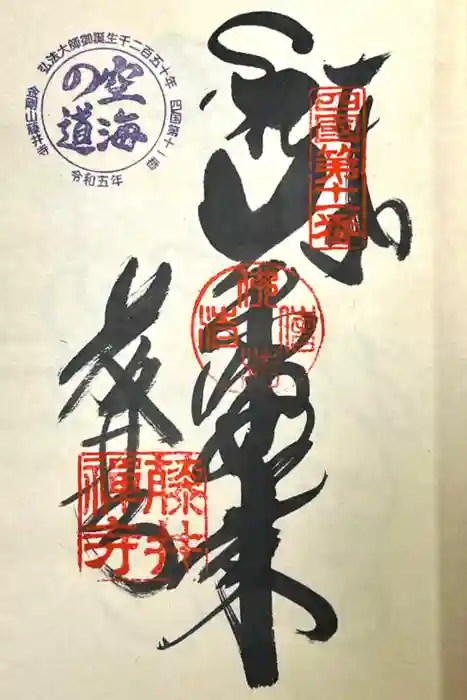 弘法大師御誕生千二百五十年
空海
の道
四国第十一番
金剛山藤井寺
令和五年
四國第十一番
薬師如来
藤井寺
藤井
禪寺